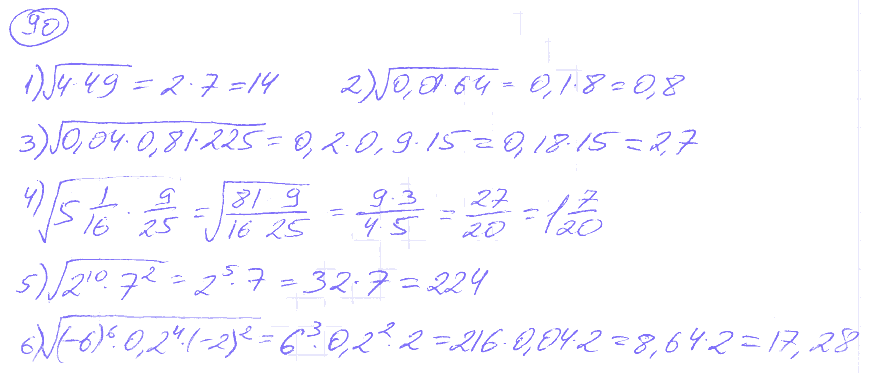 90
1) √(4·49) = 2·7 = 14 2) √(0,01·64) = 0,1·8 = 0,8
3) √(0,04·0,81·225) = 0,2·0,9·15 = 0,18·15 = 2,7
4) √(5 1/16 · 9/25) = √(81 9/16 25) = 9·3/4·5 = 27/20 = 1 7/20
5) √(2¹⁰·7²) = 2⁵·7 = 32·7 = 224
6) √((-6)⁶·0,2⁴·(-2)²) = 6³·0,2²·2 = 216·0,04·2 = 8,64·2 = 17,28